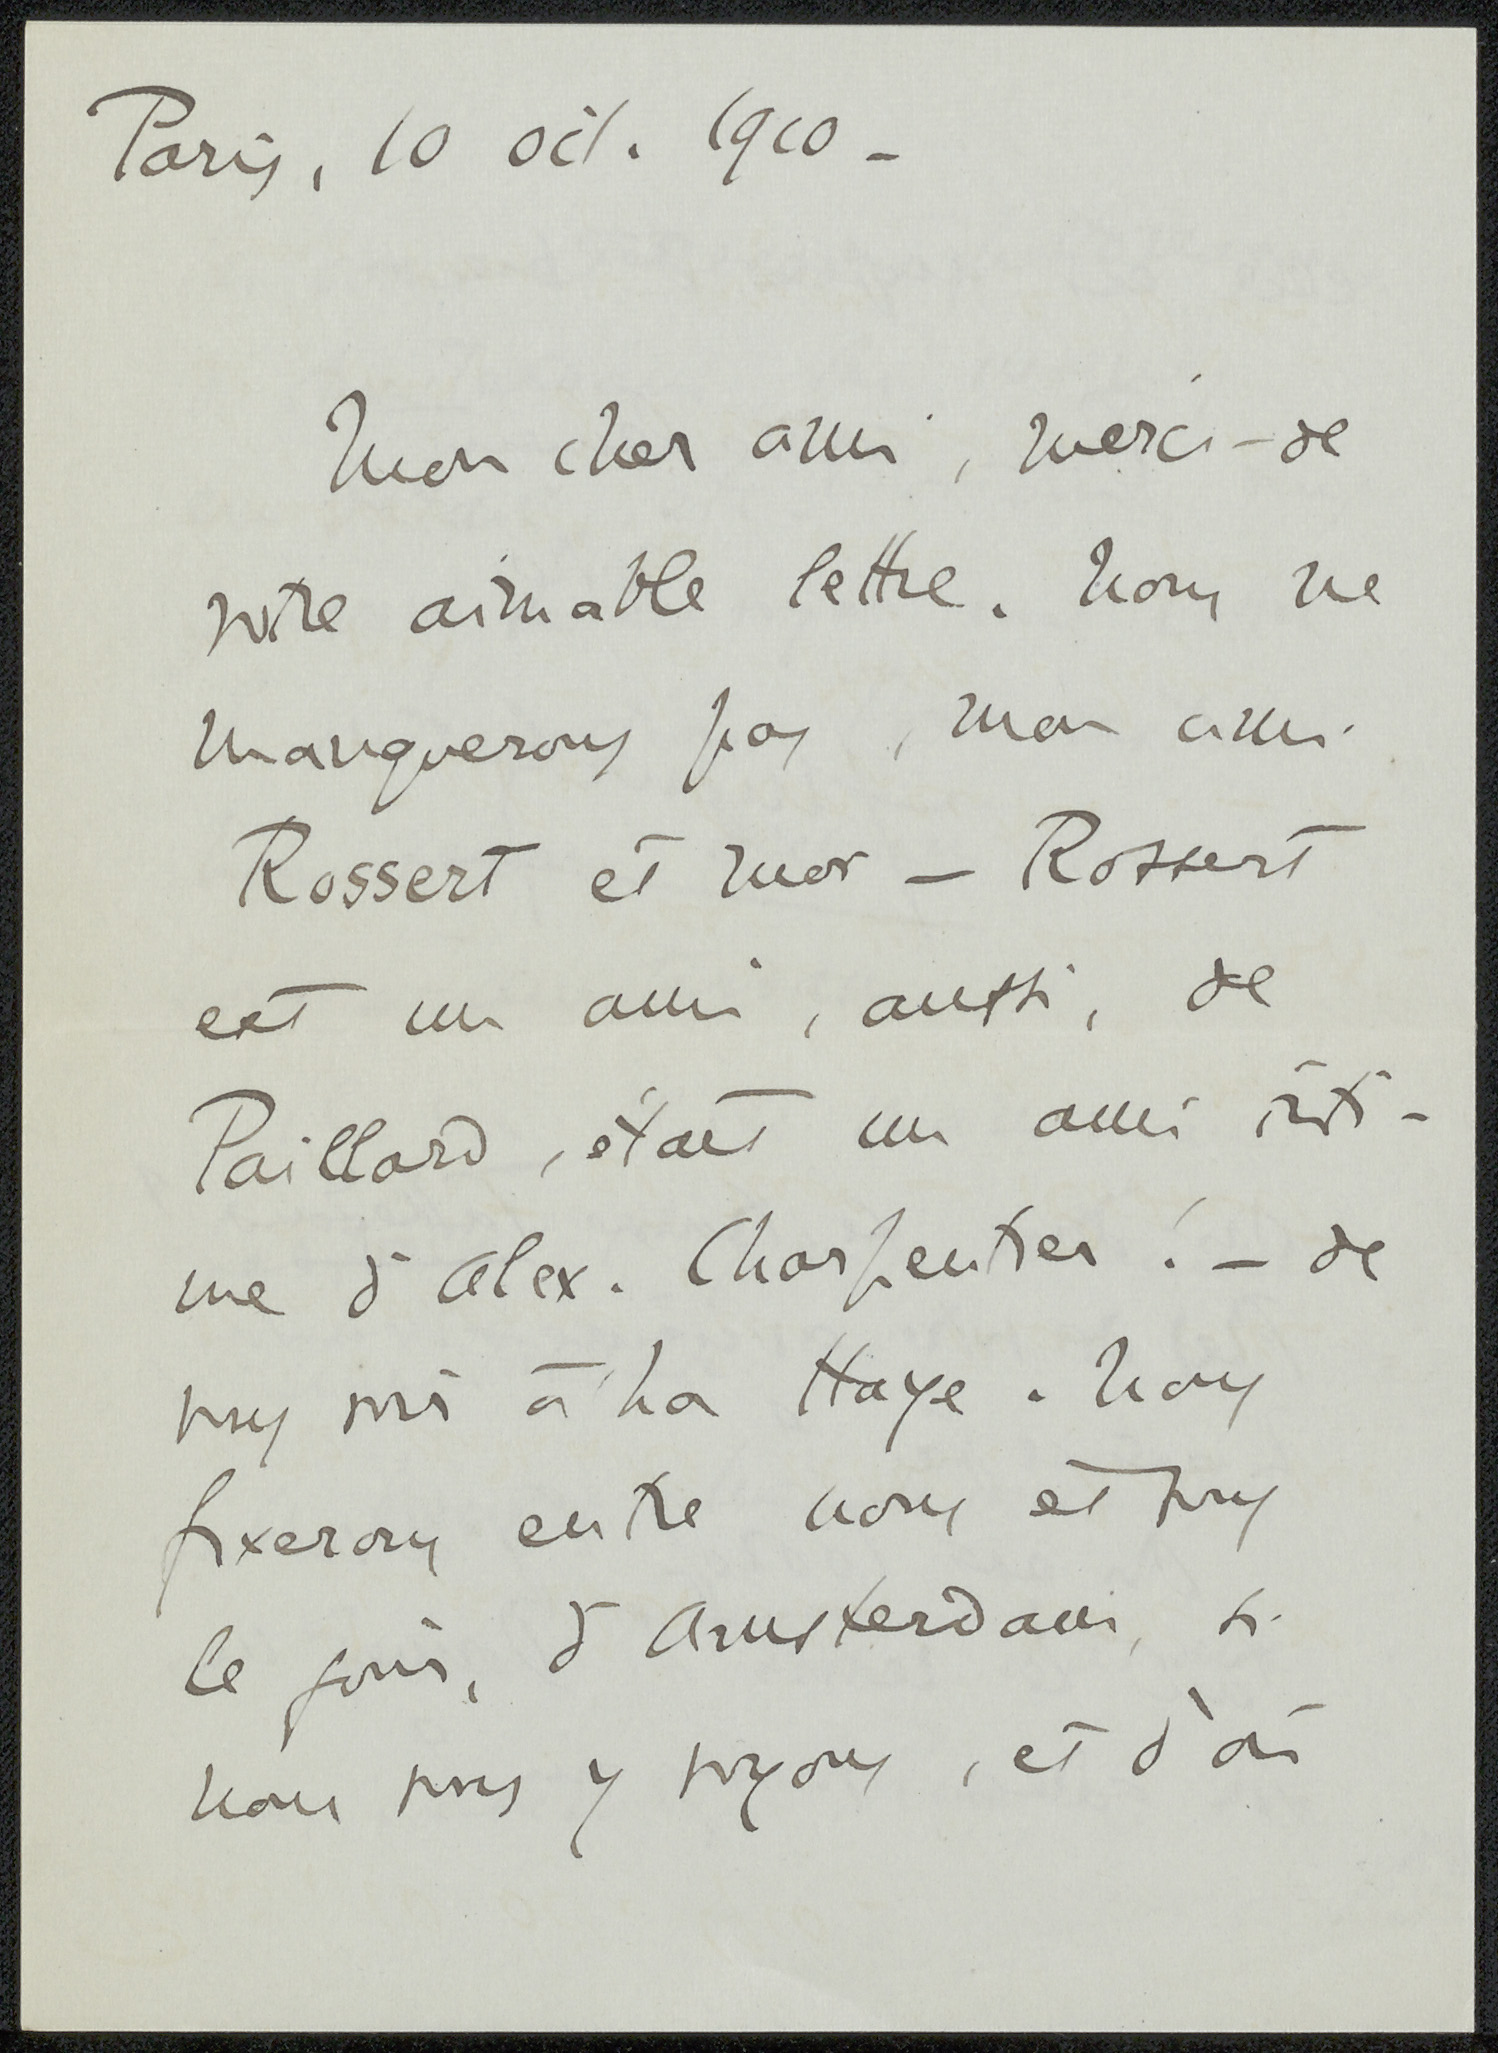 Paris, 10 oct. 1910 -
Mon cher ami, merci - de
votre aimable lettre. Nous ne
manquerons pas, mon ami
Rossert et moi - Rossert
est un ami, aussi, de
Paillard, était un ami inti-
me d'Alex. Charpentier ! - de
vous voir à La Haye. Nous
fixerons entre nous et vous
le jour, d'Amsterdam, si
nous vous y voyons, et d'où